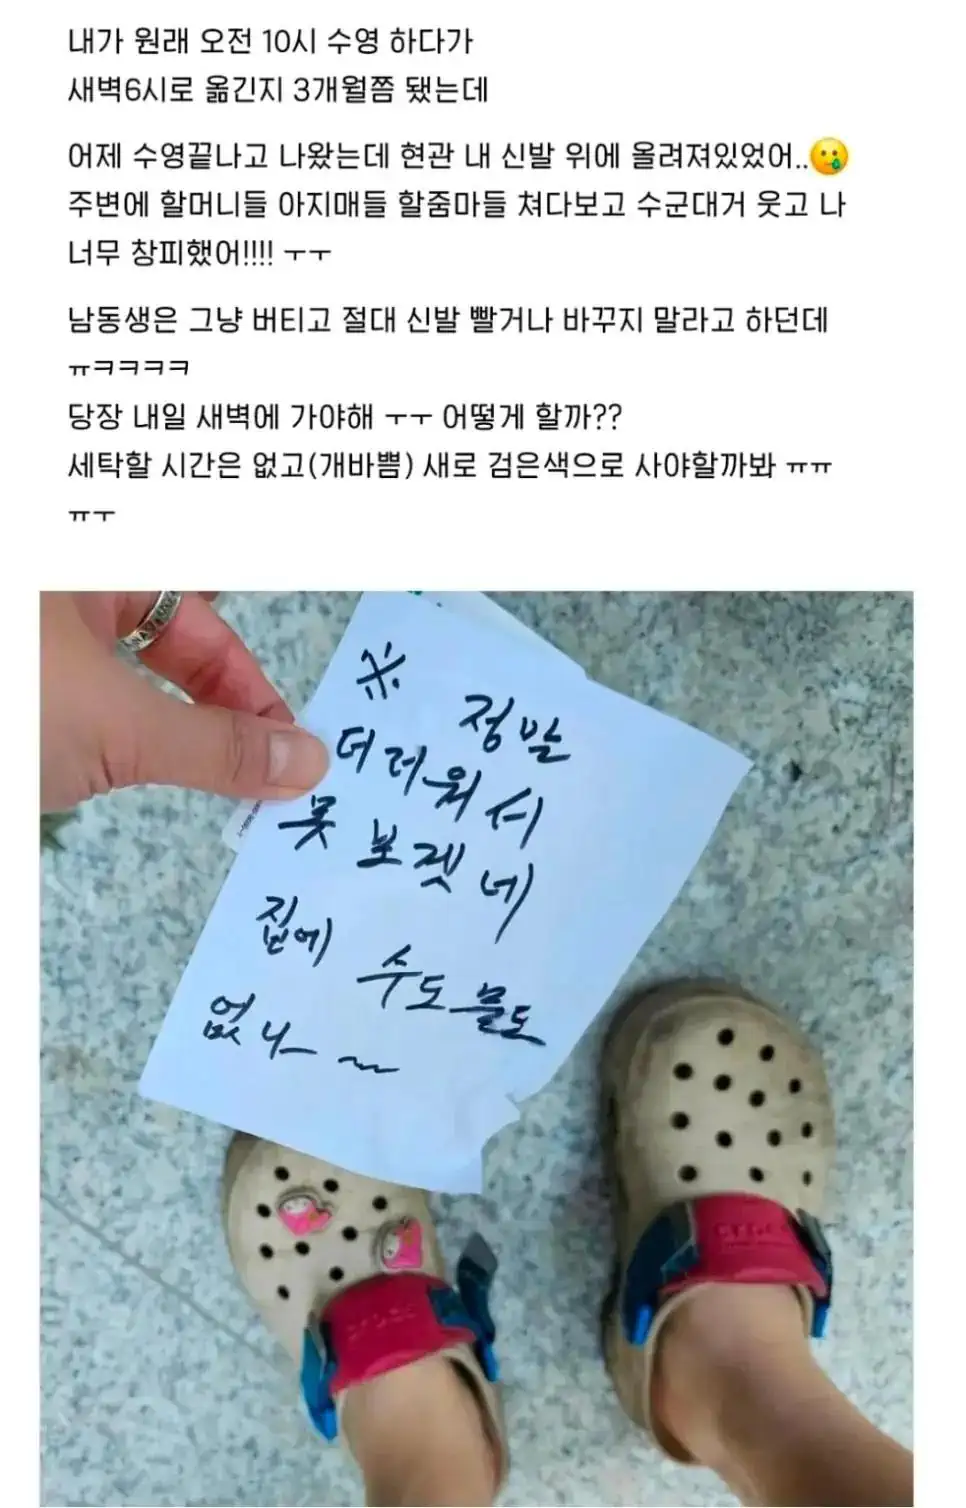 내가 원래 오전 10시 수영 하다가
새벽6시로 옮긴지 3개월쯤 됐는데
어제 수영끝나고 나왔는데 현관 내 신발 위에 올려져있었어..🥲
주변에 할머니들 아지매들 할줌마들 쳐다보고 수군대거 웃고 나
너무 창피했어!!!! ㅜㅜ
남동생은 그냥 버티고 절대 신발 빨거나 바꾸지 말라고 하던데
ㅠㅋㅋㅋㅋ
당장 내일 새벽에 가야해 ㅜㅜ 어떻게 할까??
세탁할 시간은 없고(개바쁨) 새로 검은색으로 사야할까봐 ㅠㅠ
ㅠㅜ
※ 정말
더러워서
못 보겟네
집에 수도물도
없나~